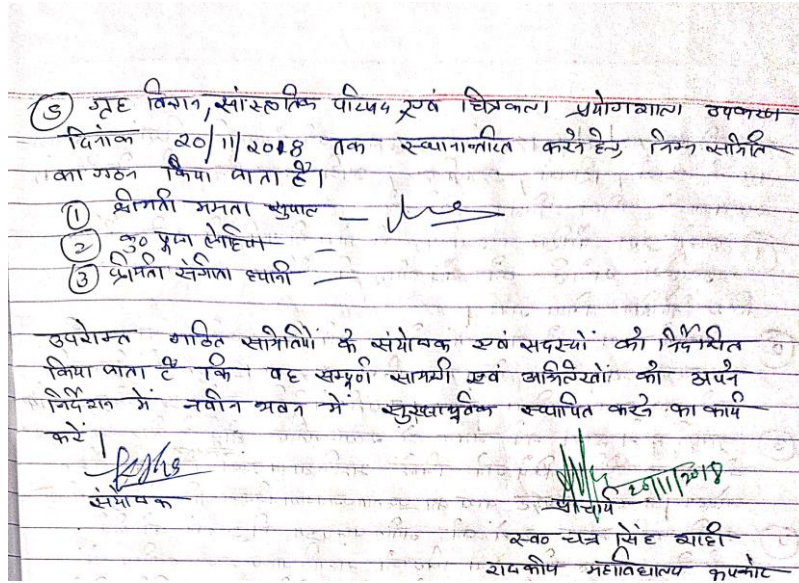 ⑤ गृह विज्ञान, सांस्कृतिक परिषद एवं चित्रकला प्रयोगशाला उपकरण
दिनांक 20/11/2018 तक स्थानान्तरित करने हेतु निम्न समिति
का गठन किया जाता है।
① श्रीमती ममता सुयाल —
② कु० पूजा लोहिया —
③ श्रीमती संगीता ध्यानी —
उपरोक्त गठित समितियों के संयोजक एवं सदस्यों को निर्देशित
किया जाता है कि वह सम्पूर्ण सामग्री एवं अभिलेखों को अपने
निर्देशन में नवीन भवन में सुरक्षापूर्वक स्थापित करने का कार्य
करें।
संयोजक
20/11/2018
प्राचार्य
स्व० चन्द्र सिंह शाही
राजकीय महाविद्यालय कपकोट